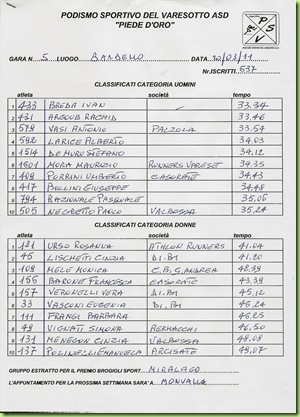 PODISMO SPORTIVO DEL VARESOTTO ASD
"PIEDE D'ORO"
GARA N. 5 LUOGO BARDELLO DATA 20/03/11
Nr.ISCRITTI 537
CLASSIFICATI CATEGORIA UOMINI
atleta società tempo
1 433 BREDA IVAN 33,34
2 431 ARGOUB RACHID 33,46
3 579 VASI ANTONIO 33,54
4 592 LARICE ALBERTO 34,03
5 1514 DE MURU STEFANO 34,12
6 1501 MORA MAURIZIO RUNNERS VARESE 34,35
7 409 PORRINI UMBERTO CASORATE 34,43
8 417 BELLINI GIUSEPPE 34,48
9 794 RAZIONALE PASQUALE 35,06
10 505 VALBOSSA 35,24
CLASSIFICATI CATEGORIA DONNE
atleta società tempo
1 121 URSO ROSANNA ATHLON RUNNERS 41,04
2 46 LISCHETTI CINZIA DI.BI 41,20
3 109 MELE MONICA C.B.S.ANDREA
4 156 BARONE FRANCESCA CASORATE 43,38
5 157 VERONELLI VERA DI.BI 45,12
6 33 VASCONI EUGENIA DI.BI 46,24
7 111 FRANGI BARBARA 46,25
8 49 VIGNATI SIMONA BERNACCHI 46,50
9 131 MENEGON CINZIA VALBOSSA 48,08
10 137 ARCISATE 49,07
GRUPPO ESTRATTO PER IL PREMIO BROGIOLI SPORT MIRALAGO
L'APPUNTAMENTO PER LA PROSSIMA SETTIMANA SARA' A MONVALLE